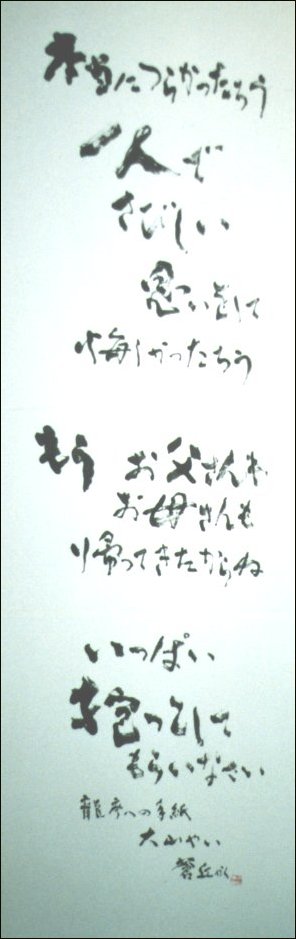 本当につらかったろう
一人で
さびしい
思いをして
悔しかったろう
もう お父さんも
お母さんも
帰ってきたからね
いっぱい
抱っこして
もらいなさい
龍彦への手紙
大山やい